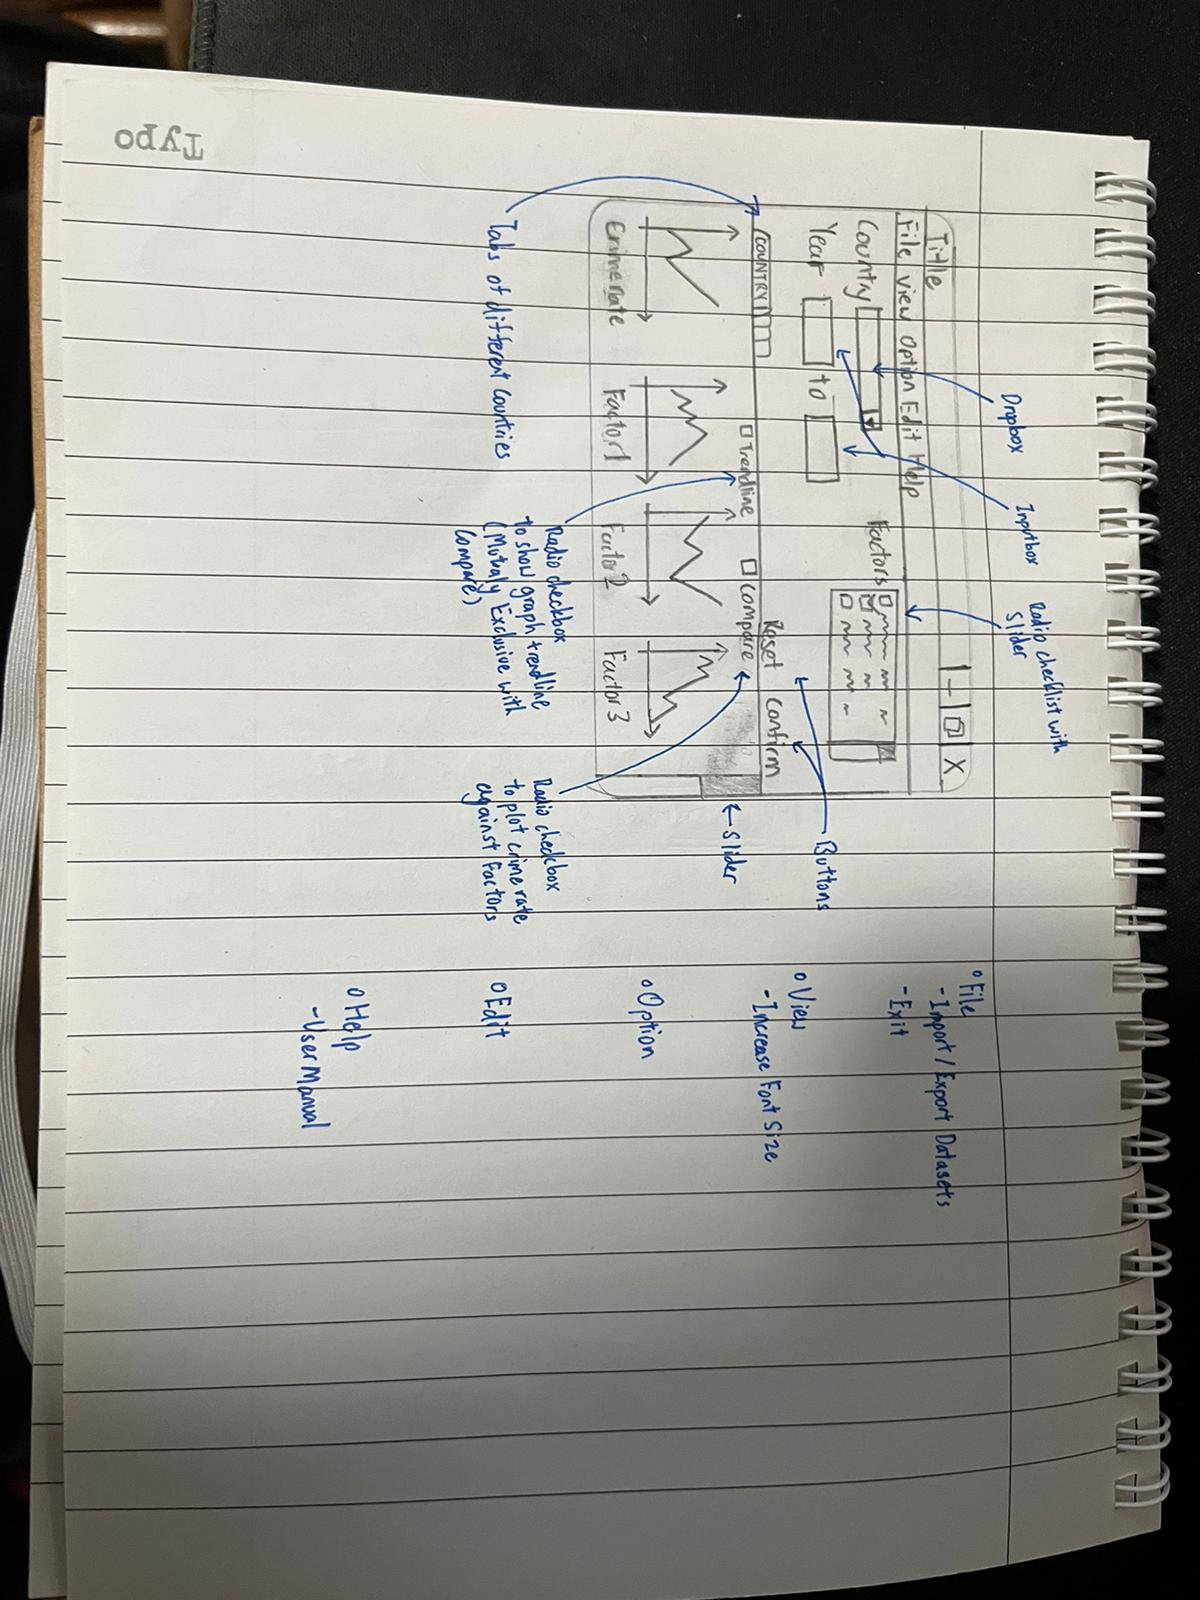 Radio checklist with
Slider
Inputbox
Dropbox
Title
X
File View Option Edit Help
Country
Factors
Year
to
Buttons
Reset
Confirm
COUNTRY
Trendline
Compare
Slider
Crimerate
Factor1
Factor2
Factor 3
Tabs of different Countries
Radio checkbox
to show graph trendline
(Mutualy Exclusive with
Compare)
Radio checkbox
to plot crime rate
against Factors
File
- Import / Export Datasets
- Exit
View
- Increase Font Size
Option
Edit
Help
- User Manual
Typo